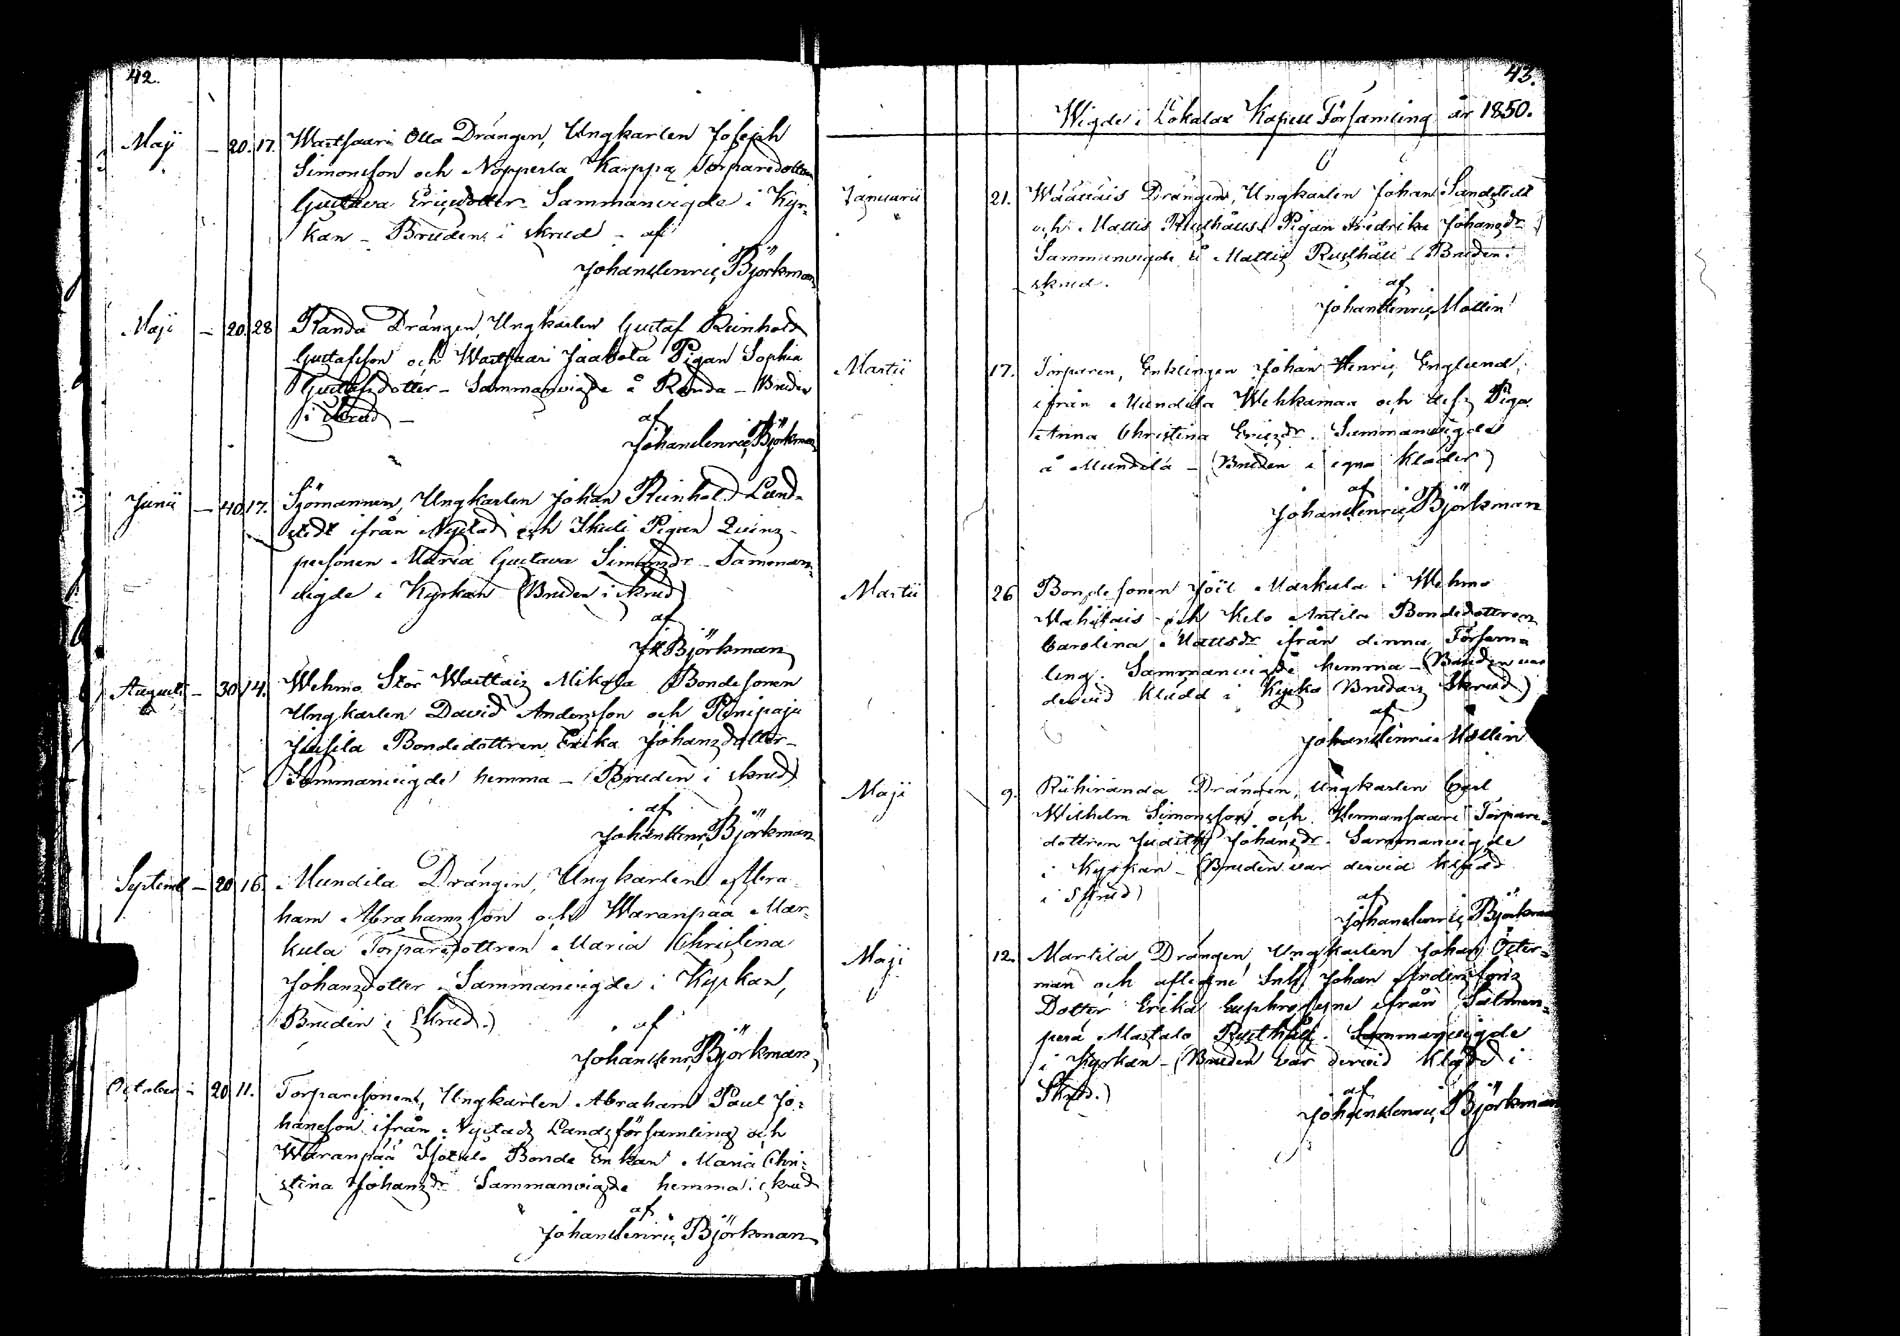 42.
Maij – 20. 17. Wartsaari Olla Drängen, Ungkarlen Joseph
Simonsson och Nopperla Karppa Torparedottern
Gustava Ericsdotter. Sammanvigde i Kyr-
kan – Bruden i skrud – af
Johan Henric Björkman
Maji – 20. 28 Randa Drängen, Ungkarlen Gustaf Reinhold
Gustafsson och Wartsaari Jaakola Pigan Sophia
Gustafsdotter – Sammanvigde å Randa – Bruden
i skrud –
af
Johan Henric Björkman
Junii – 40. 17. Sjömannen, Ungkarlen Johan Reinhold Land-
stedt ifrån Nystad och Pigan Qvins-
personen Maria Gustava Simonsdr – Samman-
vigde i Kyrkan (Bruden i skrud)
af
JH Björkman
Augusti – 30. 14. Wehmo Stor Waittais Mikola Bondesonen
Ungkarlen David Andersson och
Bondedottren Erika Johansdotter –
Sammanvigde hemma – (Bruden i skrud)
af
Johan Henr. Björkman
Septemb – 20 16. Mundila Drängen, Ungkarlen Abra-
ham Abrahamsson och Waranpää Mar-
kula Torparedottren Maria Christina
Johansdotter. Sammanvigde i Kyrkan,
Bruden i skrud.)
af
Johan Henr. Björkman
October – 20 11. Torparesonen, Ungkarlen Abraham Paul Jo-
hansson ifrån Nystads Landsförsamling och
Waranpää Bonde Enkan Maria Chri-
stina Johansdr. Sammanvigde hemma i skrud
af
Johan Henric Björkman
43.
Wigde i Lokalax Kapell Församling år 1850.
Januarii 21. Drängen, Ungkarlen Johan Sandstedt
och Mattis Rusthålls Pigan Fredrika Johansdr
Sammanvigde å Mattis Rusthåll (Bruden i
skrud.
af
Johan Henric Mollin
Martii 17. Torparen, Enklingen Johan Henric Englund,
ifrån Mundila Wehkamaa och dess Piga
Anna Christina Ericsdr. Sammanvigde
å Mundila – (Bruden i egna kläder)
af
Johan Henric Björkman
Martii 26 Bondesonen Joël Markula i Wehmo
och Kelo Antila Bondedottren
Carolina Mattsdr ifrån denna Försam
ling. Sammanvigde hemma – (Bruden var
dervid klädd i Kyrko Brudars skrud)
af
Johan Henric Mollin
Maji 9. Drängen, Ungkarlen Carl
Wilhelm Simonsson och Hermansaari Torpare-
dottren Judith Johansdr. Sammanvigde
i Kyrkan – (Bruden var dervid klädd
i skrud)
af
Johan Henric Björkman
Maji 12. Martila Drängen, Ungkarlen Johan Öster-
man och aflidne Inh. Johan Anderssons
Dotter Erika Euphrosyne ifrån Salmen-
perä Mastalo Rusthåll. Sammanvigde
i Kyrkan – (Bruden var dervid klädd i
Skrud.)
af
Johan Henric Björkman